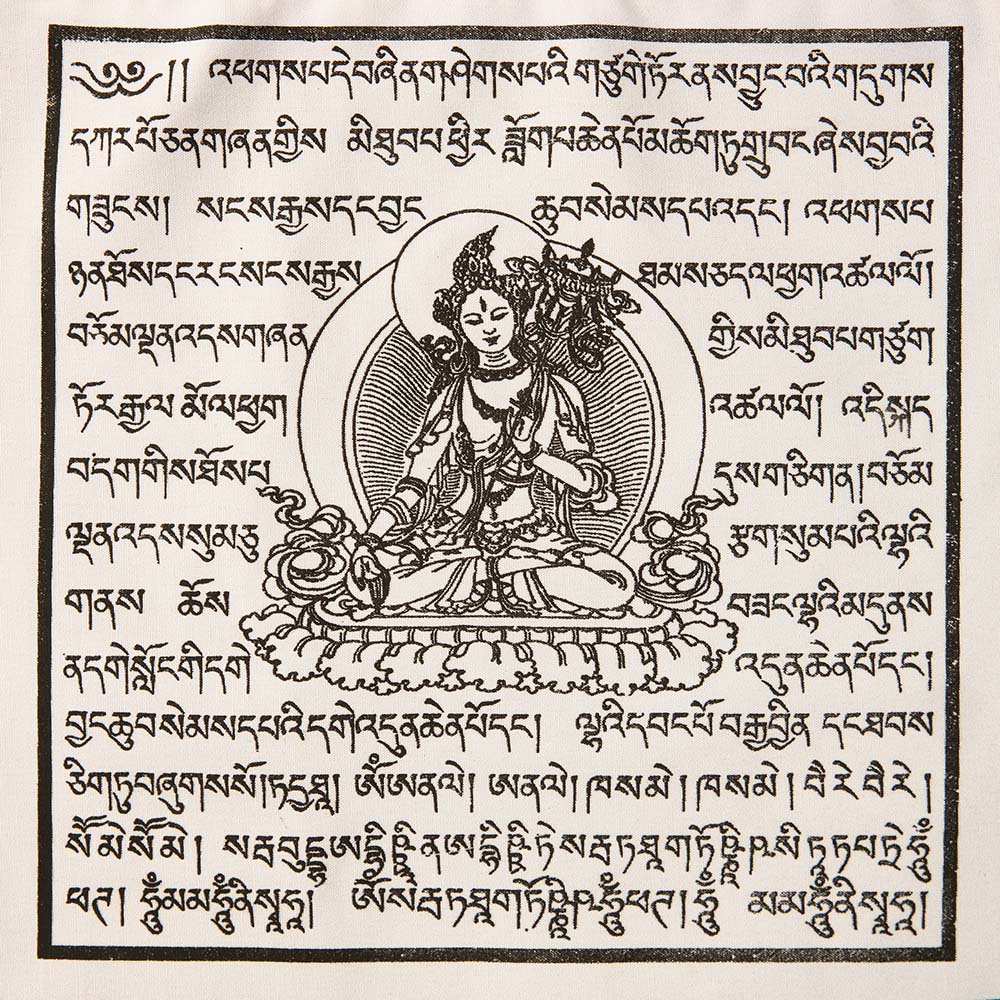 ༄༅།། འཕགས་པ་དེ་བཞིན་གཤེགས་པའི་གཙུག་ཏོར་ནས་བྱུང་བའི་གདུགས
དཀར་པོ་ཅན་གཞན་གྱིས མི་ཐུབ་པ་ཕྱིར་ ཟློག་པ་ཆེན་པོ་མཆོག་ཏུ་གྲུབ་ང་ཞེས་བྱ་བའི
གཟུངས། སངས་རྒྱས་དང་བྱང ཆུབ་སེམས་དཔའ་དང་། འཕགས་པ
ཉན་ཐོས་དང་རང་སངས་རྒྱས ཐམས་ཅད་ལ་ཕྱག་འཚལ་ལོ།
བཅོམ་ལྡན་འདས་གཞན གྱིས་མི་ཐུབ་པ་གཙུག
ཏོར་རྒྱལ་མོ་ལ་ཕྱག འཚལ་ལོ། འདི་སྐད
བདག་གིས་ཐོས་པ དུས་གཅིག་ན། བཅོམ
ལྡན་འདས་སུམ་ཅུ རྩ་གསུམ་པའི་ལྷའི
གནས ཆོས བཟང་ལྷའི་མདུན་ས
ན་དགེ་སློང་གི་དགེ འདུན་ཆེན་པོ་དང་།
བྱང་ཆུབ་སེམས་དཔའི་དགེ་འདུན་ཆེན་པོ་དང་། ལྷའི་དབང་པོ་བརྒྱ་བྱིན་དང་ཐབས
ཅིག་ཏུ་བཞུགས་སོ། ཏདྱ་ཐཱ། ཨོཾ་ཨ་ན་ལེ། ཨ་ན་ལེ། ཁ་ས་མེ། ཁ་ས་མེ། བཻ་རེ་བཻ་རེ།
སཽ་མེ་སཽ་མེ། སརྦ་བུདྡྷ་ཨ་དྷིཥྛི་ན་ཨ་དྷིཥྛི་ཏེ་སརྦ་ཏ་ཐཱ་ག་ཏོཥྞཱི་ཥ་སི་ཏཱ་ཏ་པ་ཏྲེ་ཧཱུྃ
ཕཊ། ཧཱུྃ་མ་མ་ཧཱུྃ་ནི་སྭཱ་ཧཱ། ཨོཾ་སརྦ་ཏ་ཐཱ་ག་ཏོཥྞཱི་ཥ་ཧཱུྃ་ཕཊ། ཧཱུྃ མ་མ་ཧཱུྃ་ནི་སྭཱ་ཧཱ།